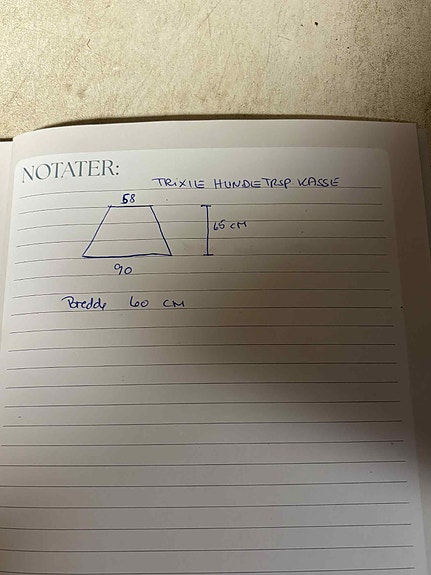 NOTATER:
TRIXIE HUNDETRSP KASSE
58
65 CM
90
Bredde 60 CM